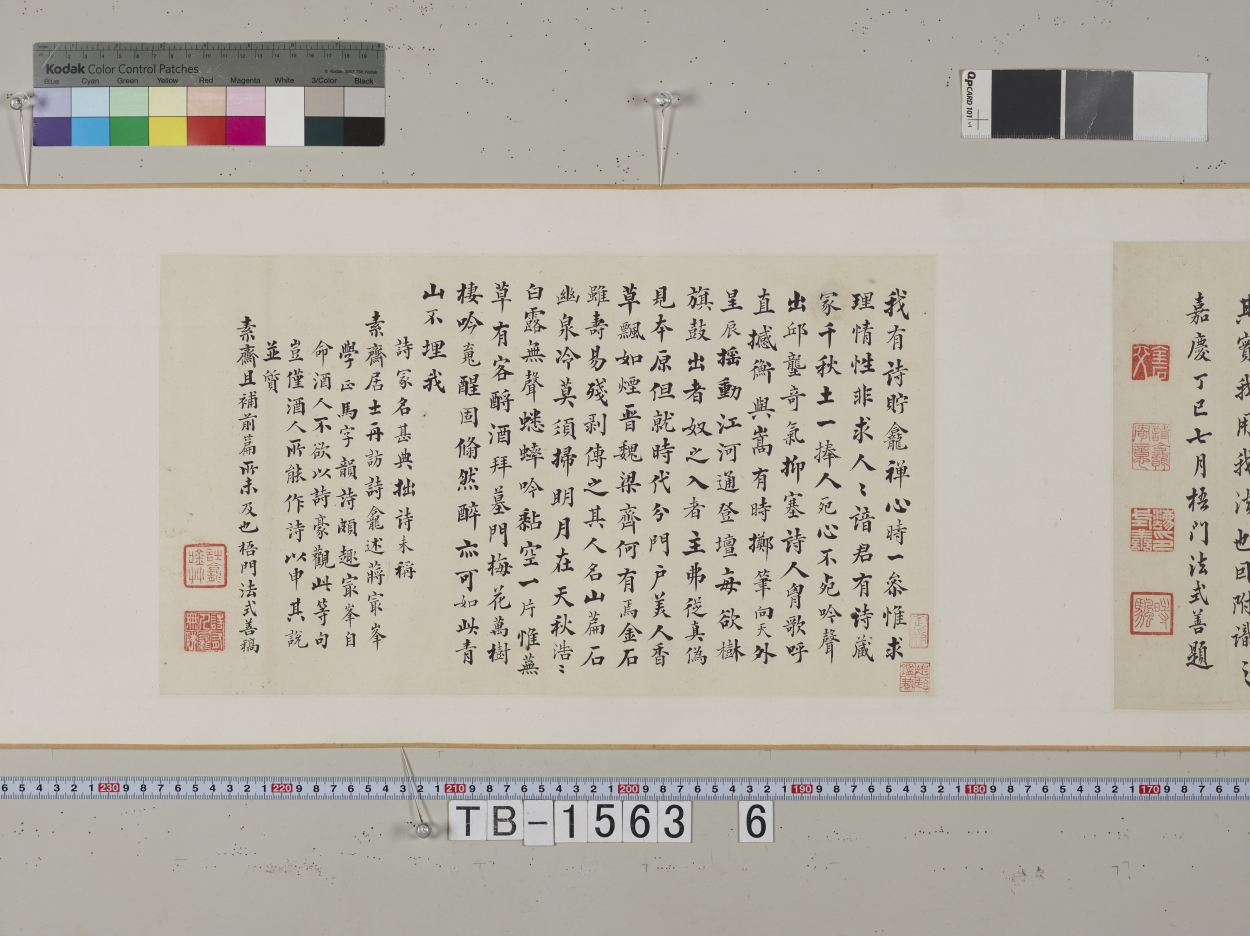 其實我用我法也因附識之
嘉慶丁巳七月梧門法式善題
我有詩貯龕禅心時一叅惟求
理情性非求人〻諳君有詩藏
冢千秋土一捧人宛心不宛吟聲
出邱壟奇氣抑塞詩人胷歌呼
直撼衡與嵩有時擲筆向天外
星辰摇動江河通登壇毎欲樹
旗鼓出者奴之入者主弗從真偽
見夲原但就時代分門户美人香
草飄如煙晋魏梁齊何有焉金石
雖壽易殘剥傳之其人名山篇石
幽泉冷莫須掃明月在天秋浩〻
白露無聲蟋蟀吟黏空一片惟蕪
草有客酹酒拜墓門梅花萬樹
棲吟䰟醒固翛然醉亦可如此青
山不埋我
詩冢名甚典拙詩未稱
素齋居士再訪詩龕述蔣㝡峯
學正馬字韻詩頗趣㝡峯自
命酒人不欲以詩豪觀此等句
豈僅酒人所能作詩以申其説
並質
素齋且補前篇所未及也梧門法式善稿
Kodak Color Control Patches
Blue Cyan Green Yellow Red Magenta White 3/Color Black
QPCARD 101
230 220 210 200 190 180 170
TB-1563 6